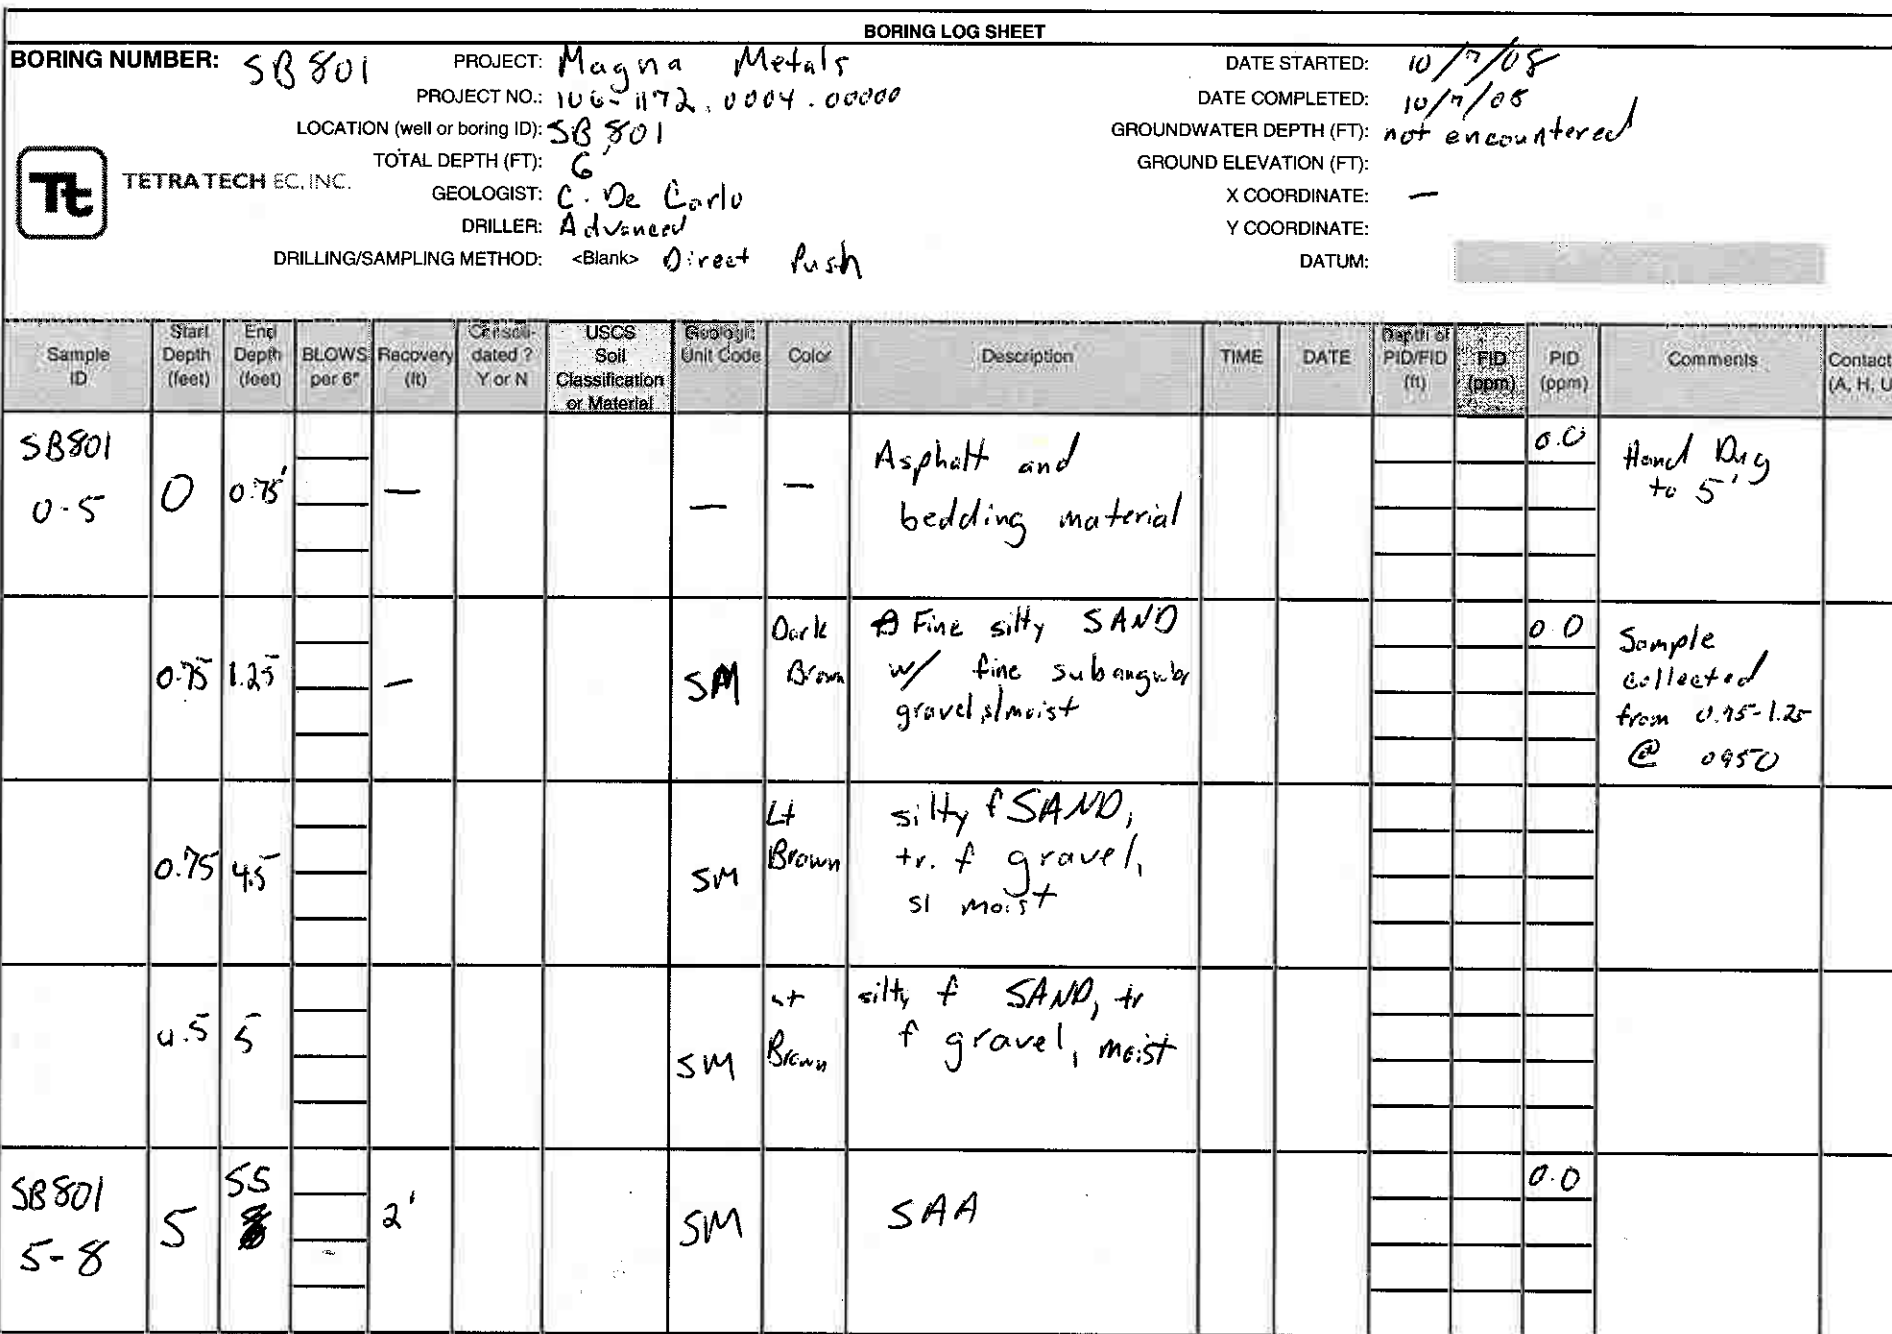 BORING LOG SHEET
BORING NUMBER: SB 801
PROJECT: Magna Metals
PROJECT NO.: 106-1172.0004.00000
LOCATION (well or boring ID): SB 801
TOTAL DEPTH (FT): 6'
GEOLOGIST: C. De Carlo
DRILLER: Advanced
DRILLING/SAMPLING METHOD: <Blank> Direct Push
DATE STARTED: 10/7/08
DATE COMPLETED: 10/7/08
GROUNDWATER DEPTH (FT): not encountered
GROUND ELEVATION (FT):
X COORDINATE: —
Y COORDINATE:
DATUM:
Tt TETRA TECH EC, INC.
Sample ID | Start Depth (feet) | End Depth (feet) | BLOWS per 6" | Recovery (ft) | Consoli-dated ? Y or N | USCS Soil Classification or Material | Geologic Unit Code | Color | Description | TIME | DATE | Depth of PID/FID (ft) | FID (ppm) | PID (ppm) | Comments | Contact (A, H, U
SB801 0-5 | 0 | 0.75' | — | — | — | Asphalt and bedding material | 0.0 | Hand Dug to 5'
0.75 | 1.25 | — | SM | Dark Brown | Fine silty SAND w/ fine subangular gravel, sl moist | 0.0 | Sample collected from 0.75-1.25 @ 0950
0.75 | 4.5 | SM | Lt Brown | silty f SAND, tr. f gravel, sl moist
4.5 | 5 | SM | Lt Brown | silty f SAND, tr f gravel, moist
SB801 5-8 | 5 | 5.5 | 2' | SM | SAA | 0.0